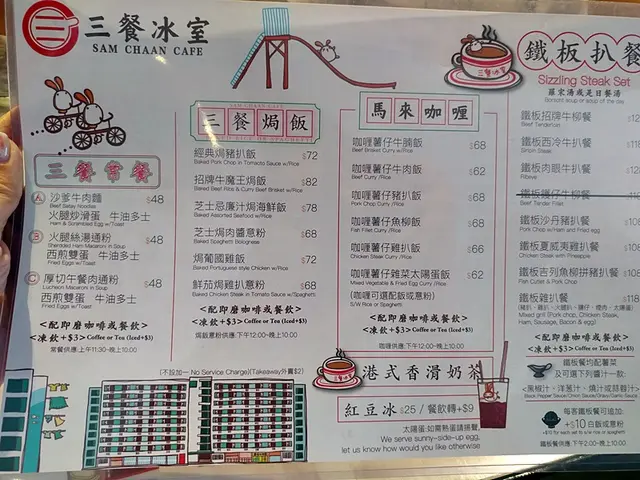 三餐冰室
SAM CHAAN CAFE
三餐常餐
Ⓐ 沙爹牛肉麵 $48
Beef Satay Noodles
火腿炒滑蛋 牛油多士
Ham & Scrambled Egg w/Toast
Ⓑ 火腿絲湯通粉 $48
Shredded Ham Macaroni in Soup
西煎雙蛋 牛油多士
Fried Eggs w/Toast
Ⓒ 厚切午餐肉通粉 $48
Luncheon Macaroni in Soup
西煎雙蛋 牛油多士
Fried Eggs w/Toast
<配即磨咖啡或餐飲>
<凍飲+$3> Coffee or Tea (Iced+$3)
常餐供應: 上午11:30-晚上10:00
SAM CHAAN CAFE
三餐焗飯
經典焗豬扒飯 $72
Baked Pork Chop in Tomato Sauce w/Rice
招牌牛魔王焗飯 $82
Baked Beef Ribs & Curry Beef Brisket w/Rice
芝士忌廉汁焗海鮮飯 $78
Baked Assorted Seafood w/Rice
芝士焗肉醬意粉 $68
Baked Spaghetti Bolognese
焗葡國雞飯 $72
Baked Portuguese style Chicken w/Rice
鮮茄焗雞扒意粉 $68
Baked Chicken Steak in Tomato Sauce w/Spaghetti
<配即磨咖啡或餐飲>
<凍飲+$3> Coffee or Tea (Iced+$3)
焗飯意粉供應:下午12:00-晚上10:00
(不設加一 No Service Charge)(Takeaway外賣$2)
馬來咖喱
咖喱薯仔牛腩飯 $68
Beef Brisket Curry w/Rice
咖喱薯仔牛肉飯 $62
Beef Curry w/Rice
咖喱薯仔豬扒飯 $68
Pork Chop Curry w/Rice
咖喱薯仔魚柳飯 $68
Fish Fillet Curry w/Rice
咖喱薯仔雞扒飯 $66
Chicken Steak Curry w/Rice
咖喱薯仔雜菜太陽蛋飯 $62
Mixed Vegetable & Fried Egg Curry w/Rice
(咖喱可選配飯或意粉)
S/W Rice or Spaghetti
<配即磨咖啡或餐飲>
<凍飲+$3> Coffee or Tea (Iced+$3)
咖喱供應: 下午12:00-晚上10:00
港式香滑奶茶
紅豆冰 $25 / 餐飲轉+$9
太陽蛋:如需熟蛋請揚聲,
We serve sunny-side-up egg,
let us know how would you like otherwise
三餐冰室
鐵板扒餐
Sizzling Steak Set
羅宋湯或是日餐湯
Borscht soup or soup of the day
鐵板招牌牛柳餐
Beef Tenderloin
鐵板西冷牛扒餐
Sirloin Steak
鐵板肉眼牛扒餐
Ribeye
鐵板沙丹豬扒餐
Pork Chop w/Ham and Fried egg
鐵板夏威夷雞扒餐
Chicken Steak w/Pineapple
鐵板吉列魚柳拼豬扒餐
Fish Cutlet w/Pork Chop
鐵板雜扒餐
Mixed grill (Pork chop, Chicken Steak,
Ham, Sausage, Bacon & egg)
<配即磨咖啡或餐飲>
<凍飲+$3> Coffee or Tea (Iced+$3)
鐵板餐均配薯菜
及可選下列醬汁一款:
<黑椒汁、洋蔥汁、燒汁或蒜蓉汁>
每客鐵板餐可追加:
+$10 白飯或意粉
鐵板餐供應: 下午2:00-晚上10:00